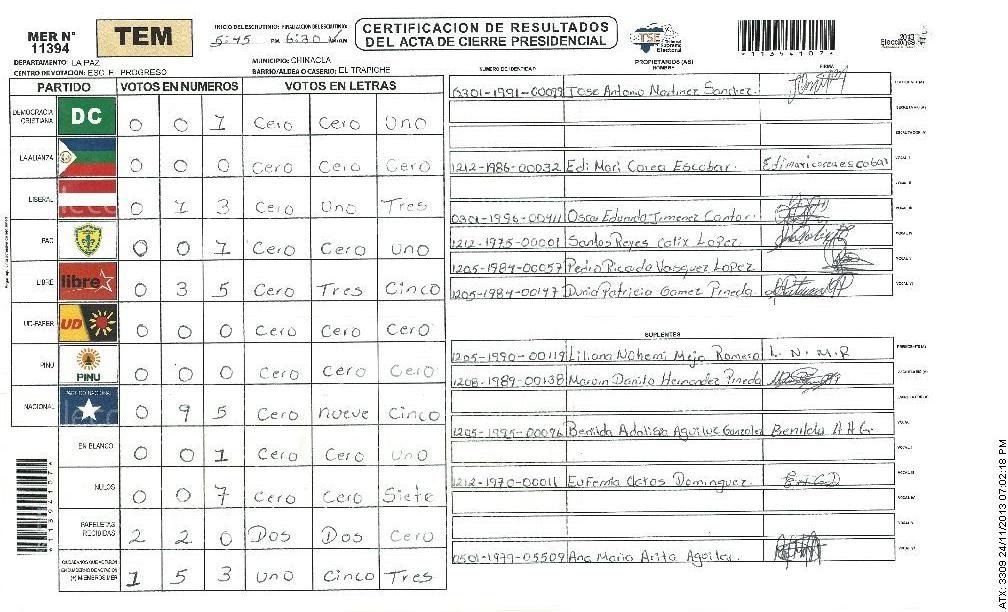 MER N° 11394
TEM
INICIO DEL ESCRUTINIO: FINALIZACION DEL ESCRUTINIO:
5:45 PM 6:30
CERTIFICACION DE RESULTADOS DEL ACTA DE CIERRE PRESIDENCIAL
TSE Tribunal Supremo Electoral
2013
DEPARTAMENTO: LA PAZ
MUNICIPIO: CHINACLA
CENTRO DE VOTACION: ESC. F. PROGRESO
BARRIO/ALDEA O CASERIO: EL TRAPICHE
PARTIDO VOTOS EN NUMEROS VOTOS EN LETRAS
DEMOCRACIA CRISTIANA DC 0 0 1 Cero Cero Uno
LA ALIANZA 0 0 0 Cero Cero Cero
LIBERAL 0 1 3 Cero Uno Tres
PAC 0 0 1 Cero Cero Uno
LIBRE libre 0 3 5 Cero Tres Cinco
UD-FAPER UD 0 0 0 Cero Cero Cero
PINU PINU 0 0 0 Cero Cero Cero
NACIONAL 0 9 5 Cero nueve Cinco
EN BLANCO 0 0 1 Cero Cero Uno
NULOS 0 0 7 Cero Cero Siete
PAPELETAS RECIBIDAS 2 2 0 Dos Dos Cero
(+) MIEMBROS MER 1 5 3 Uno Cinco Tres
PROPIETARIOS (AS)
NUMERO DE IDENTIDAD NOMBRE FIRMA
0301-1991-00099 Jose Antonio Martinez Sanchez.
1212-1986-00032 Edi Mari Corea Escobar. Edimaricoreaescobar
0301-1996-00911 Oscar Eduardo Jimenez Cantor.
1212-1975-00001 Santos Reyes Calix Lopez.
1205-1984-00057 Pedro Ricardo Vasquez Lopez
1205-1984-00147 Dunia Patricia Gomez Pineda
SUPLENTES
1205-1990-00119 Liliana Nohemi Mejia Romero L. N. M. R
1208-1989-00138 Marvin Danilo Hernandez Pineda
1205-1995-00096 Benilda Adaliza Aguiluz Gonzalez Benilda A A G.
1212-1970-00011 Eufemia Claros Dominguez.
0501-1979-05509 Ana Maria Arita Aguilar.
ATX: 3309 24/11/2013 07:02:18 PM